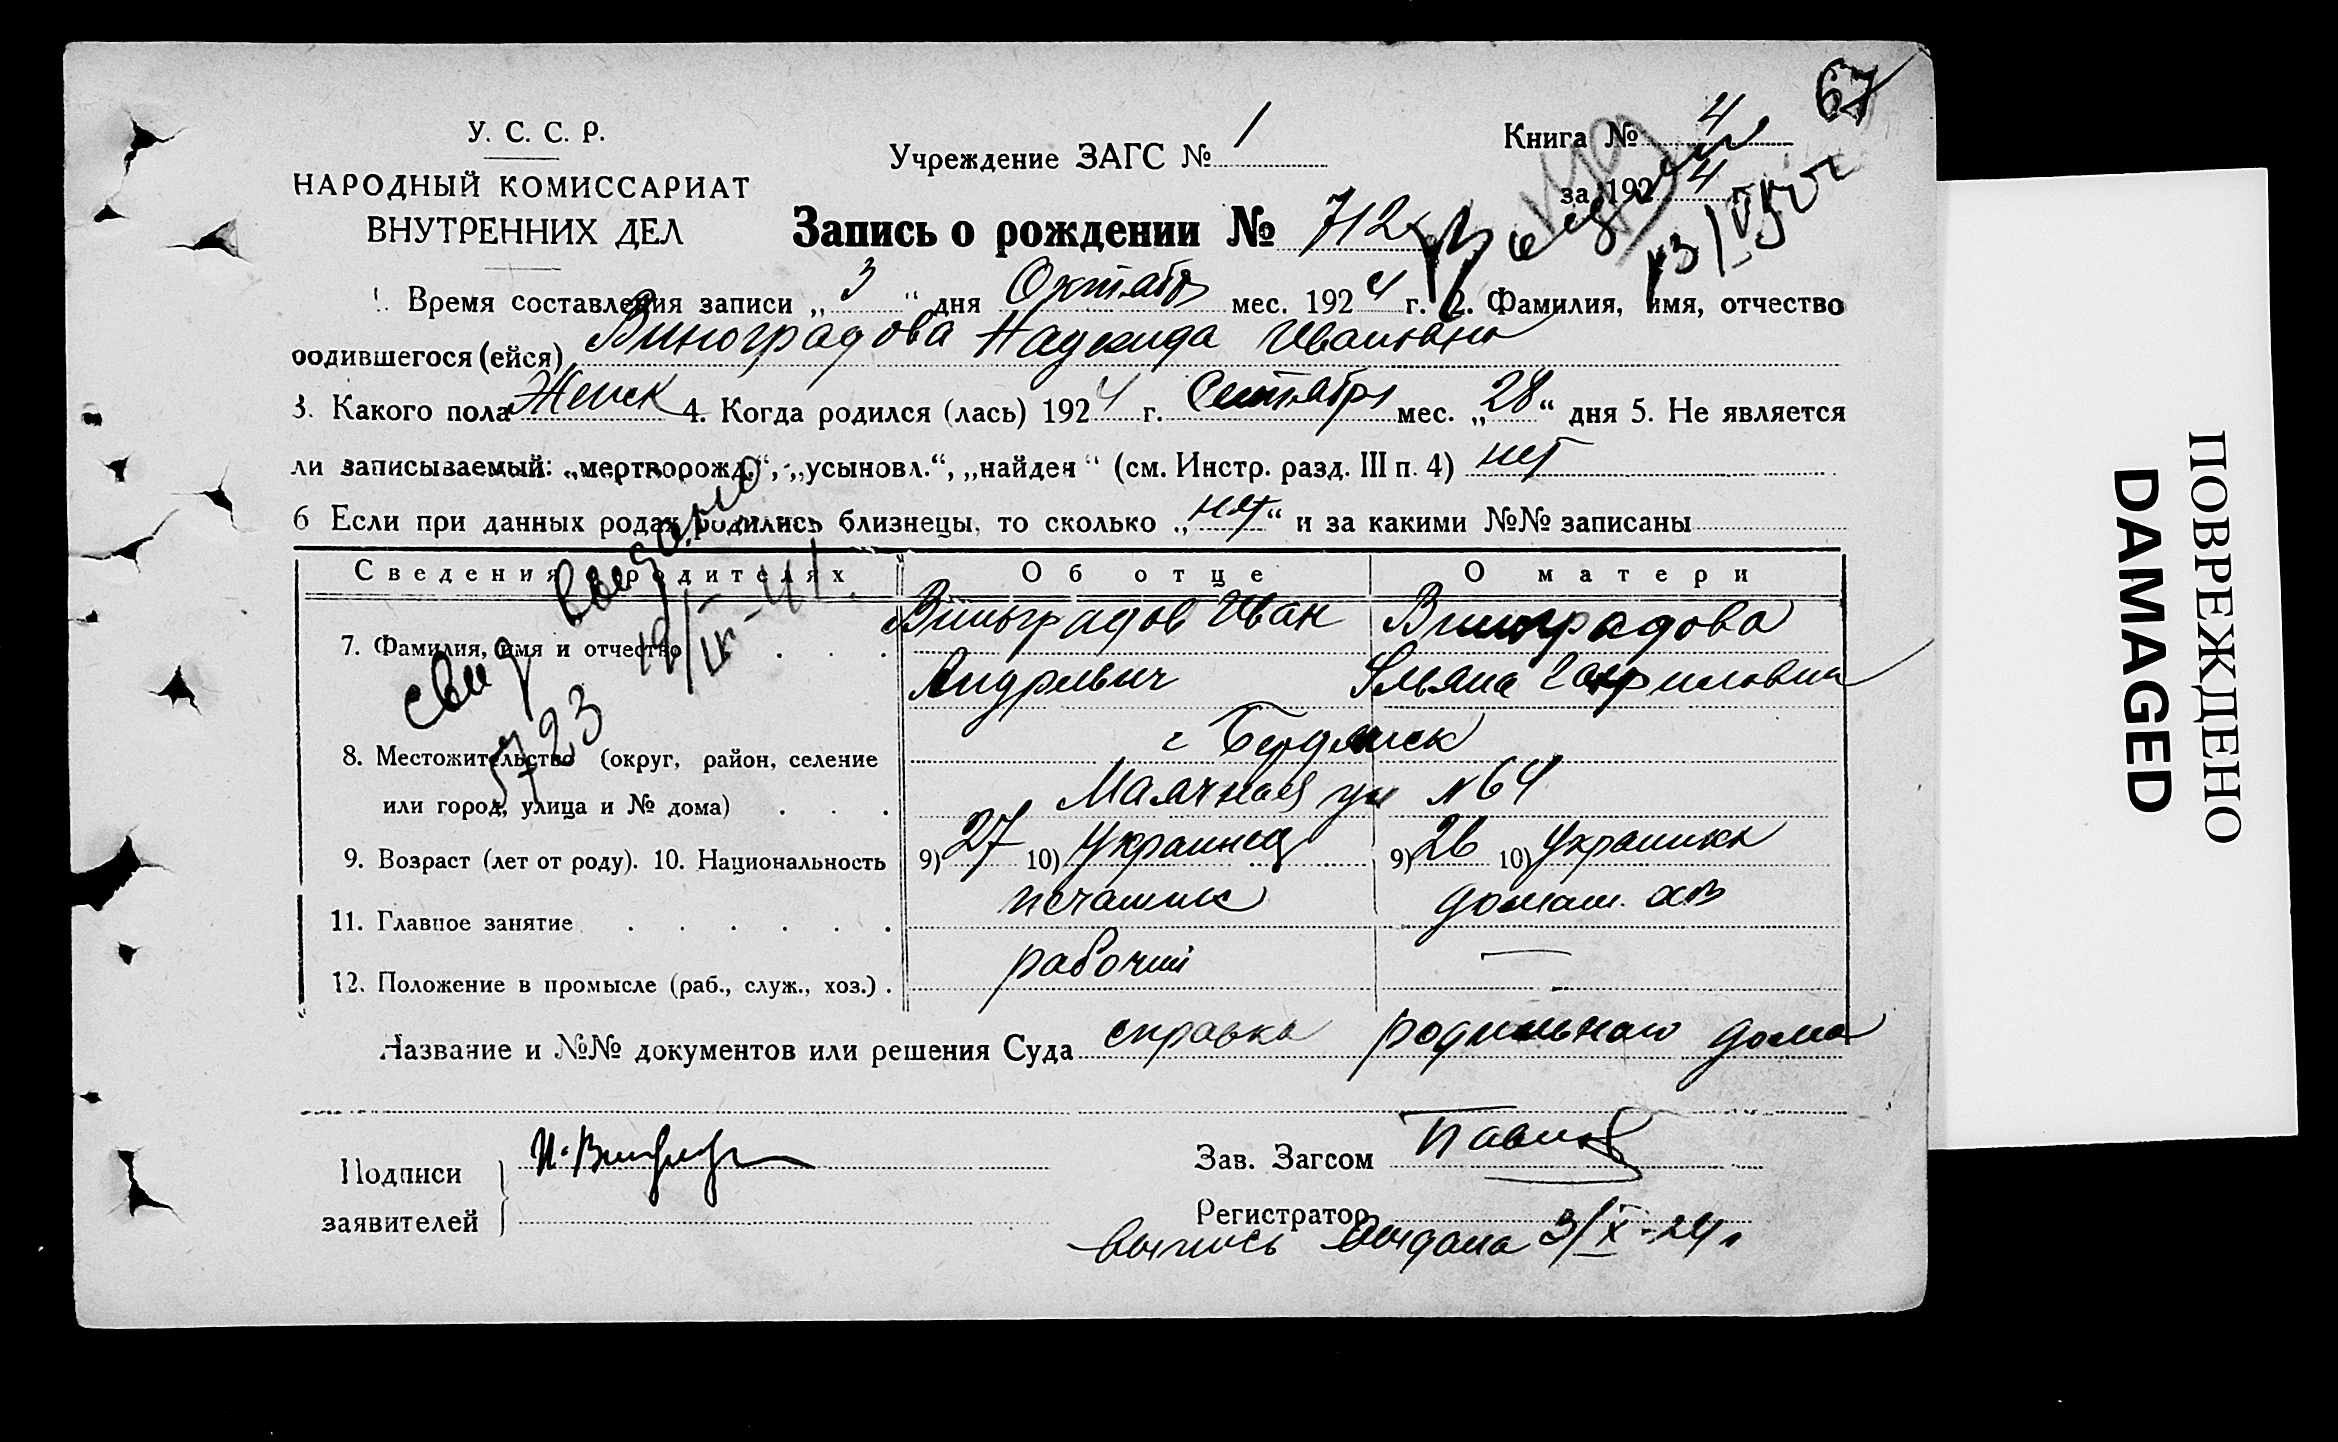 67
У. С. С. Р.
НАРОДНЫЙ КОМИССАРИАТ
ВНУТРЕННИХ ДЕЛ
Учреждение ЗАГС № 1
Книга № 4
за 1924 г.
Запись о рождении № 712
1. Время составления записи „3“ дня Октября мес. 1924 г. 2. Фамилия, имя, отчество
родившегося (ейся) Виноградова Надежида Ивановна
3. Какого пола Женск 4. Когда родился (лась) 1924 г. Сентября мес. „28“ дня 5. Не является
ли записываемый: „мертворожд.“, „усыновл.“, „найден“ (см. Инстр. разд. III п. 4) нет
6 Если при данных родах родились близнецы, то сколько „нет“ и за какими №№ записаны
Сведения о родителях Об отце О матери
7. Фамилия, имя и отчество Виноградов Иван Виноградова
Андревич Ульяна Гавриловна
8. Местожительство (округ, район, селение г Бердянск
или город, улица и № дома) Маячная ул №64
9. Возраст (лет от роду). 10. Национальность 9) 27 10) Украинец 9) 26 10) Украинка
11. Главное занятие печатник домаш. хоз
12. Положение в промысле (раб., служ., хоз.) рабочий —
Название и №№ документов или решения Суда справка родильного дома
Подписи
заявителей
И. Виноград
Зав. Загсом Павлов
Регистратор
выпись выдана 3/X-24 г
свид выдано
5723 19/IX-41
ПОВРЕЖДЕНО
DAMAGED